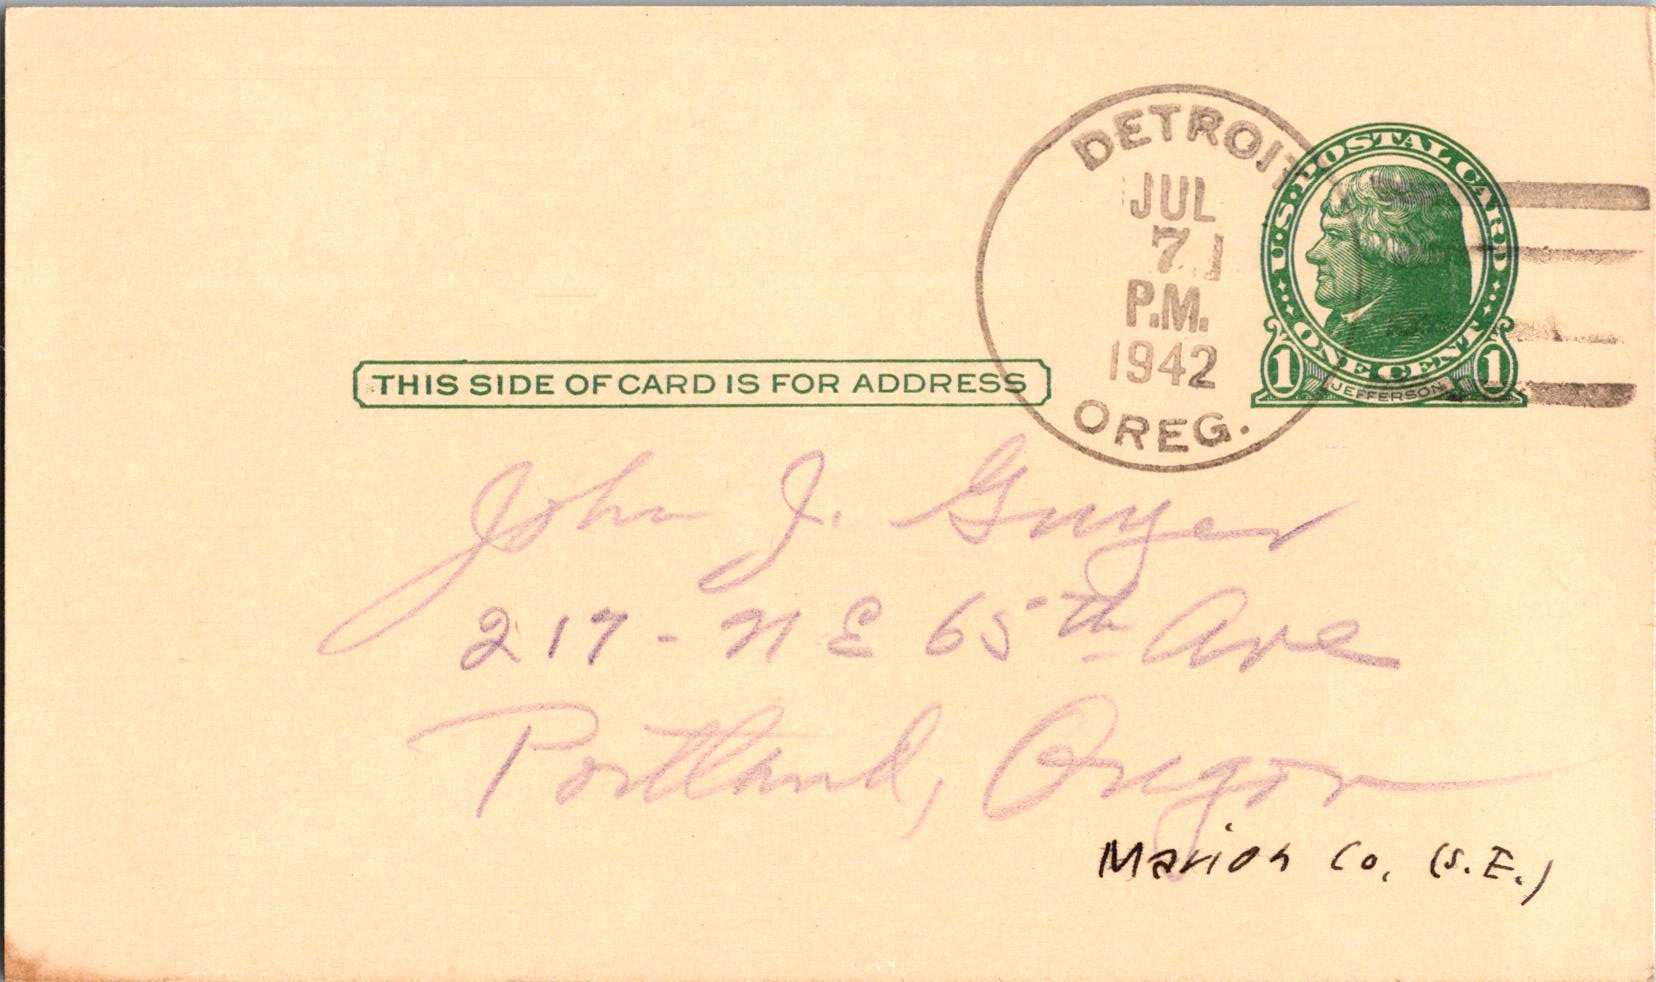 DETROIT
JUL
7
P.M.
1942
OREG.
U.S. POSTAL CARD
ONE CENT
1 1
JEFFERSON
THIS SIDE OF CARD IS FOR ADDRESS
John J. Guyer
217 - N E 65th Ave
Portland, Oregon
Marion Co. (S.E.)